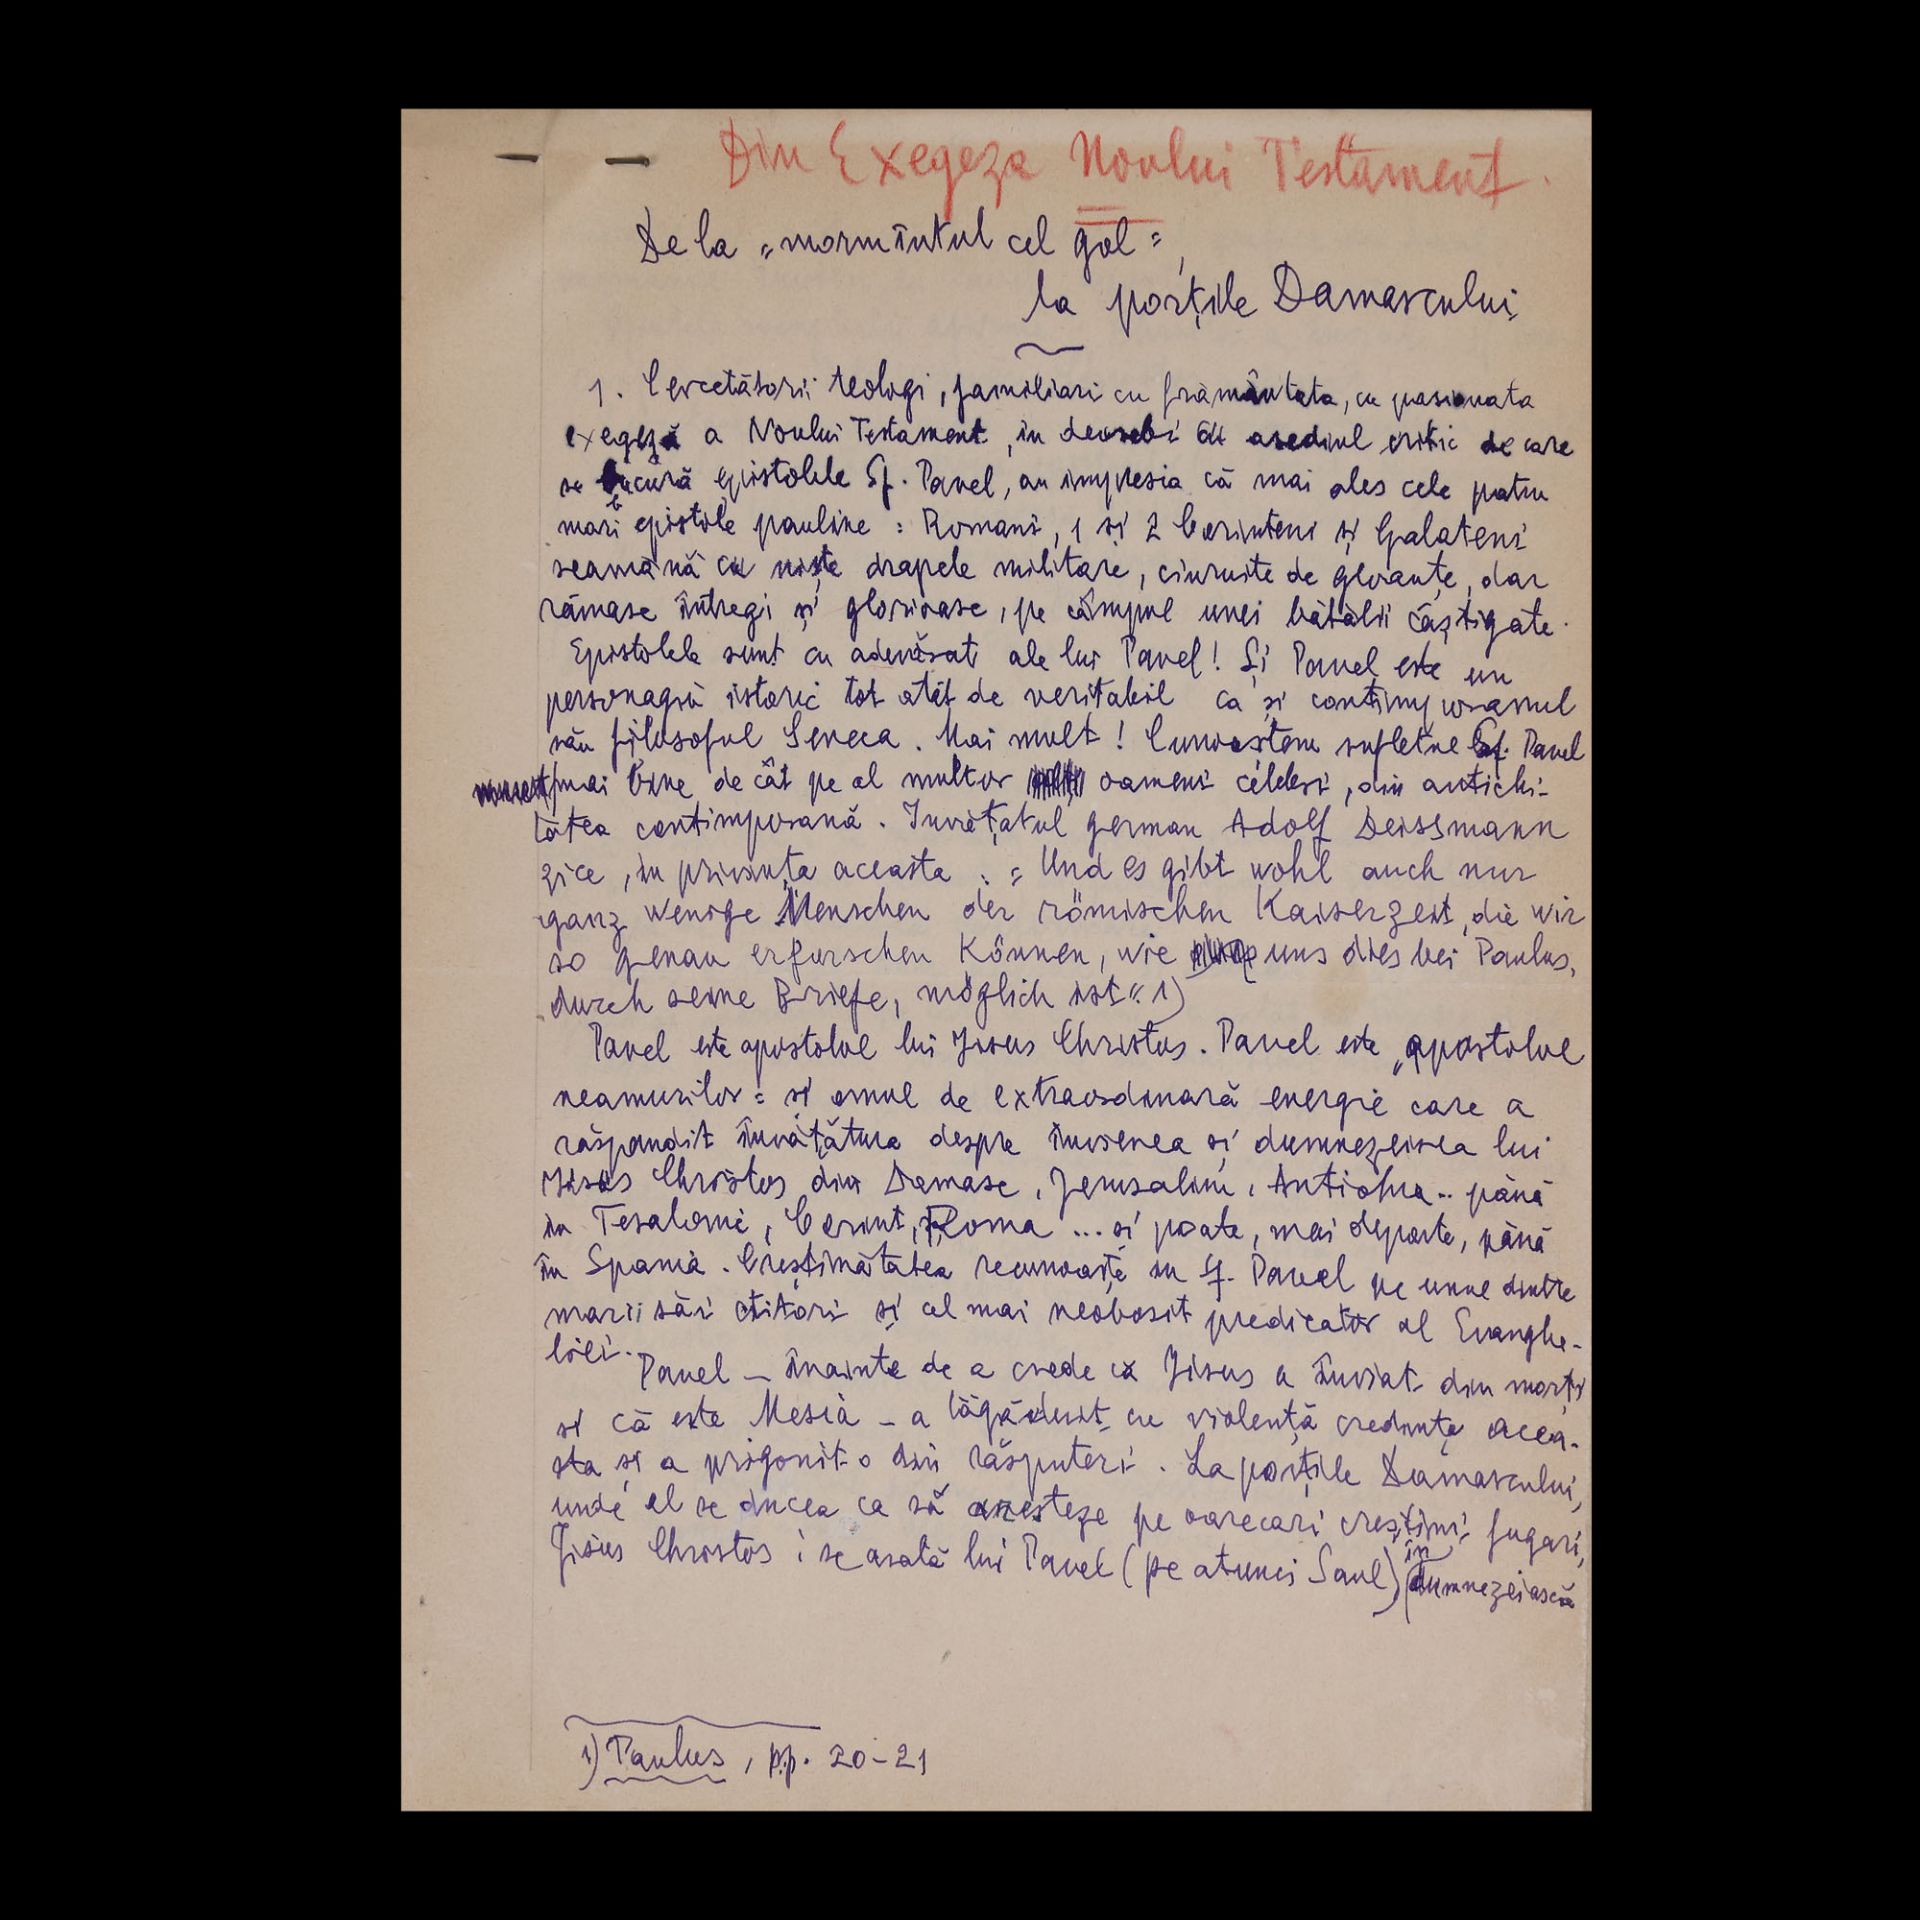 Din Exegeza Noului Testament.
De la „mormîntul cel gol”,
la porțile Damascului
1. Cercetătorii teologi, familiari cu frământata, cu pasionata
exegeză a Noului Testament, în deosebi cu asediul critic de care
se bucură epistolele Sf. Pavel, au impresia că mai ales cele patru
mari epistole pauline: Romani, 1 și 2 Corinteni și Galateni
seamănă cu niște drapele militare, ciuruite de gloanțe, dar
rămase întregi și glorioase, pe câmpul unei bătălii câștigate.
Epistolele sunt cu adevărat ale lui Pavel! Și Pavel este un
personagiu istoric tot atât de veritabil ca și contimporanul
său filosoful Seneca. Mai mult! Cunoaștem sufletul Sf. Pavel
mai bine de cât pe al multor oameni celebri, din antichi-
tatea contimporană. Invățatul german Adolf Deissmann
zice, in privința aceasta: „Und es gibt wohl auch nur
ganz wenige Menschen der römischen Kaiserzeit, die wir
so genau erforschen können, wie uns dies bei Paulus,
durch seine Briefe, möglich ist”. 1)
Pavel este apostolul lui Jisus Christos. Pavel este „apostolul
neamurilor” și omul de extraordinară energie care a
răspandit învățătura despre învierea și dumnezeirea lui
Jisus Christos din Damasc, Jerusalim, Antiohia.. până
in Tesalonic, Corint, Roma ... și poate, mai departe, până
în Spania. Creștinătatea recunoaște in Sf. Pavel pe unul dintre
marii săi ctitori și cel mai neobosit predicator al Evanghe-
liei.
Pavel – înainte de a crede ca Jisus a înviat din morți
și că este Mesia – a tăgăduit cu violență credința acea-
sta și a prigonit-o din răsputeri. La porțile Damascului,
unde el se ducea ca să aresteze pe oarecari creștini fugari,
Jisus Christos i se arată lui Pavel (pe atunci Saul) în dumnezeiască
1) Paulus, pp. 20-21